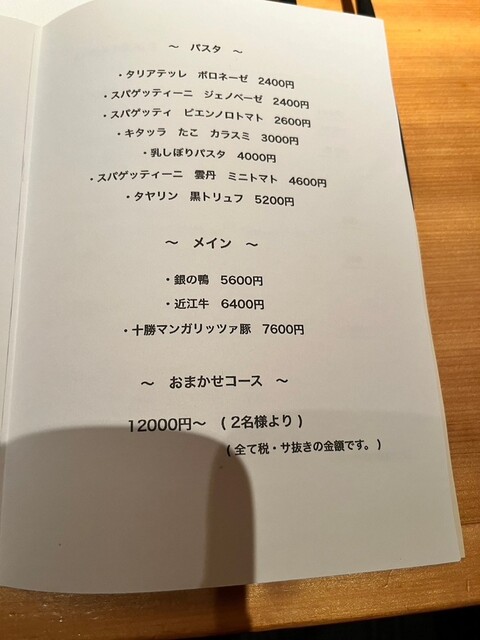 〜　パスタ　〜
・タリアテッレ　ボロネーゼ　2400円
・スパゲッティーニ　ジェノベーゼ　2400円
・スパゲッティ　ピエンノロトマト　2600円
・キタッラ　たこ　カラスミ　3000円
・乳しぼりパスタ　4000円
・スパゲッティーニ　雲丹　ミニトマト　4600円
・タヤリン　黒トリュフ　5200円
〜　メイン　〜
・銀の鴨　5600円
・近江牛　6400円
・十勝マンガリッツァ豚　7600円
〜　おまかせコース　〜
12000円〜　( 2名様より )
( 全て税・サ抜きの金額です。)